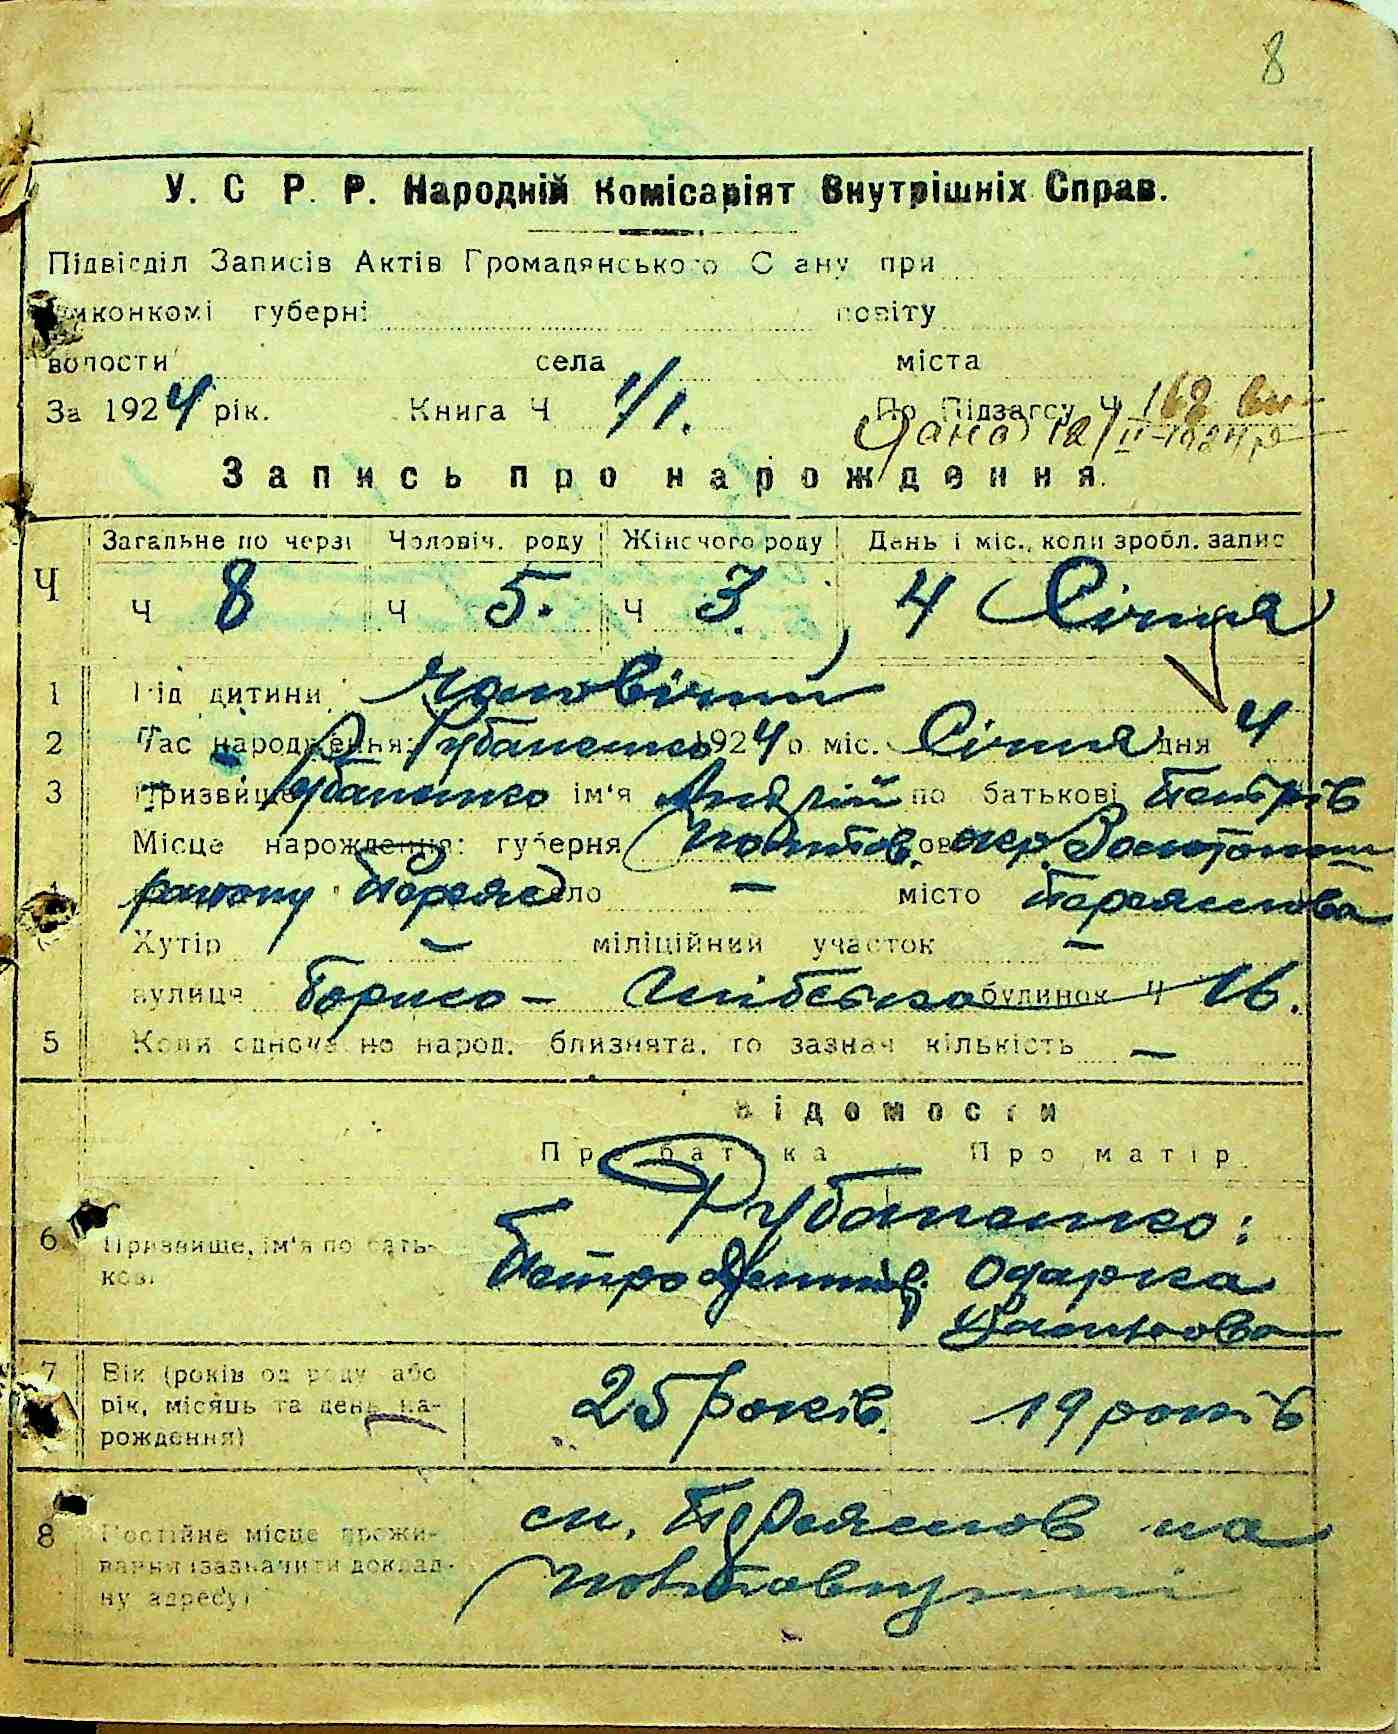 8
У. С Р. Р. Народній Комісаріят Внутрішніх Справ.
Підвісділ Записів Актів Громадянського С ану при
виконкомі губерні повіту
волости села міста
За 1924 рік. Книга Ч 1/1. По Підзагсу Ч 168
Дана 12/II-1924р
Запись про народження.
Загальне по черзі Чоловіч. роду Жіночого роду День і міс., коли зробл. запис
Ч Ч 8 Ч 5. Ч 3. 4 Січня
1 Рід дитини чоловічий
2 Час народження: Рубаненко 1924 р. міс. Січня дня 4
3 Призвище Рубаненко ім'я Андрій по батькові Петрів
Місце нарождення: губерня Полтов. окр. Золотонош
4 району Переяс село — місто Переяслова
Хутір — міліційний участок —
вулиця Борисо- будинок Ч 16.
5 Коли одноча но народ. близнята, то зазнач кількість —
Відомости
Про батька Про матір
Рубаненко:
6 Призвище, ім'я по бать- Петро Одарка
кові
7 Вік (років од роду або 25 років. 19 років
рік, місяць та день на-
рождення)
8 Постійне місце прожи- Переяслов на
вання (зазначити доклад- Полтавщині
ну адресу)